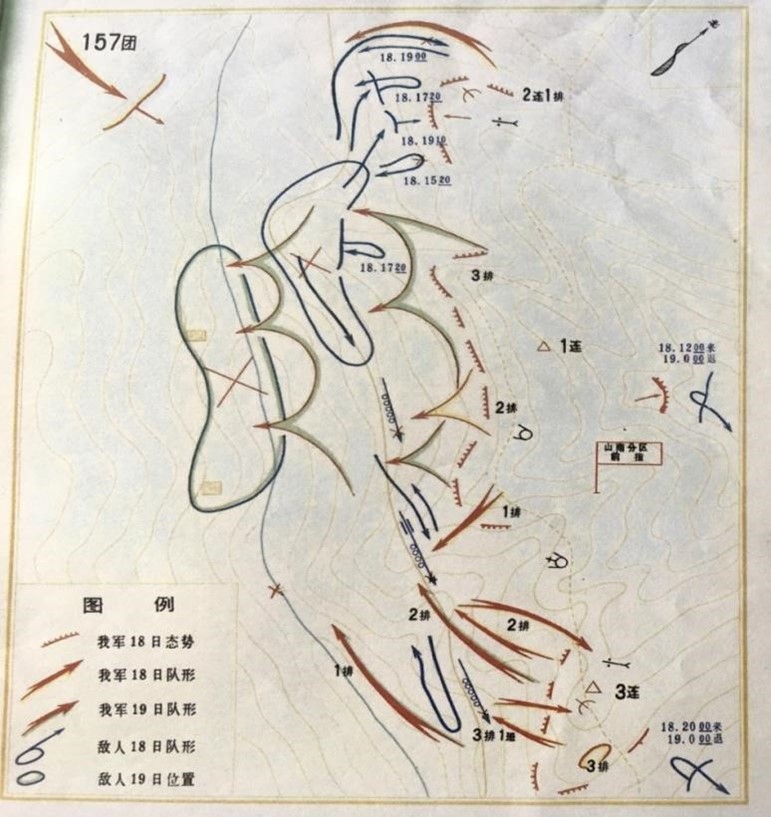 157团
18.1900
18.1720
2连1排
18.1910
18.1520
18.1720
3排
1连
18.1200来
19.000退
2排
山南分区
前指
1排
2排
2排
1排
3连
3排1班
3排
18.2000来
19.000退
图 例
我军18日态势
我军18日队形
我军19日队形
敌人18日队形
敌人19日位置